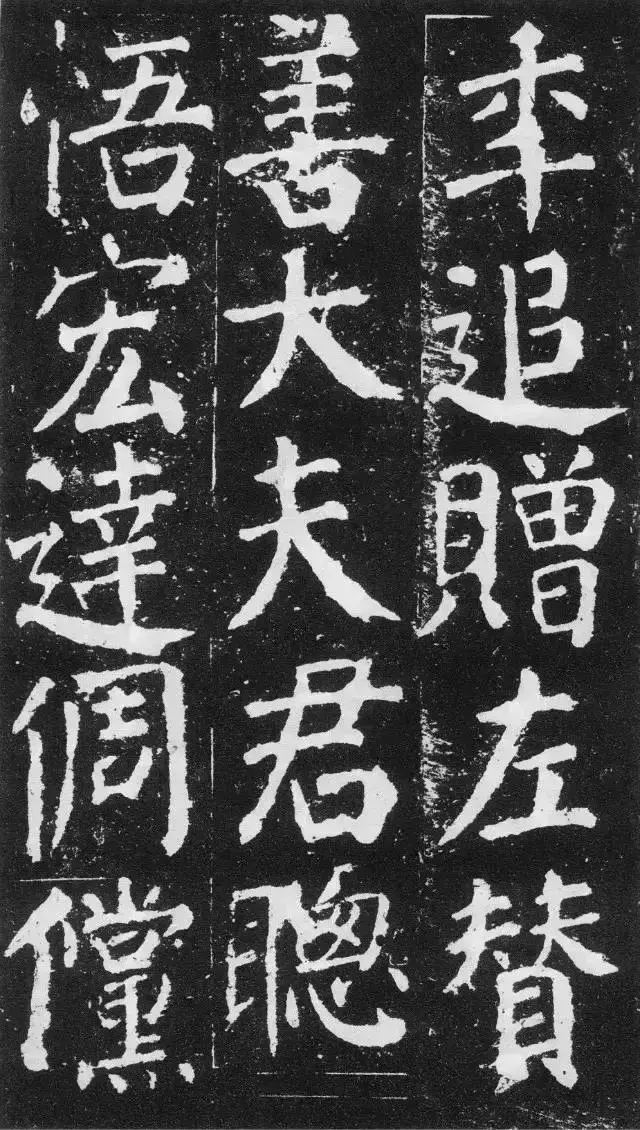 率追贈左賛
善大夫君聰
悟宏達倜儻